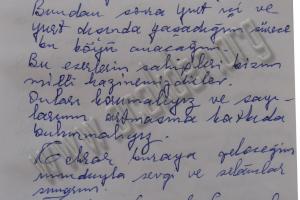 Bundan sonra yurt içi ve
yurt dışında yaşadığım sürece
bu köyü anacağım
Bu eserlerin sahipleri bizim
milli hazinemizdirler.
Onları korumalıyız ve sayı-
larının artmasına katkıda
bulunmalıyız.
Tekrar buraya geleceğim
umuduyla sevgi ve selâmlar
sunarım.